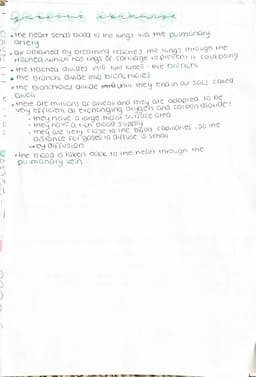 gaseous exchange
• the heart sends blood to the lungs via the pulmonary
artery
• air obtained by breathing reaches the lungs through the
trachea, which has rings of cartilage to prevent it collapsing
• the trachea divides into two tubes: the bronchi
• the bronchi divide into bronchioles
• the bronchioles divide until they end in air sacs called
alveoli
• there are millions of alveoli and they are adapted to be
very efficient at exchanging oxygen and carbon dioxide:
- they have a large, moist surface area
- they have a rich blood supply
- they are very close to the blood capillaries, so the
distance for gases to diffuse is small
↳ by diffusion
• the blood is taken back to the heart through the
pulmonary vein.